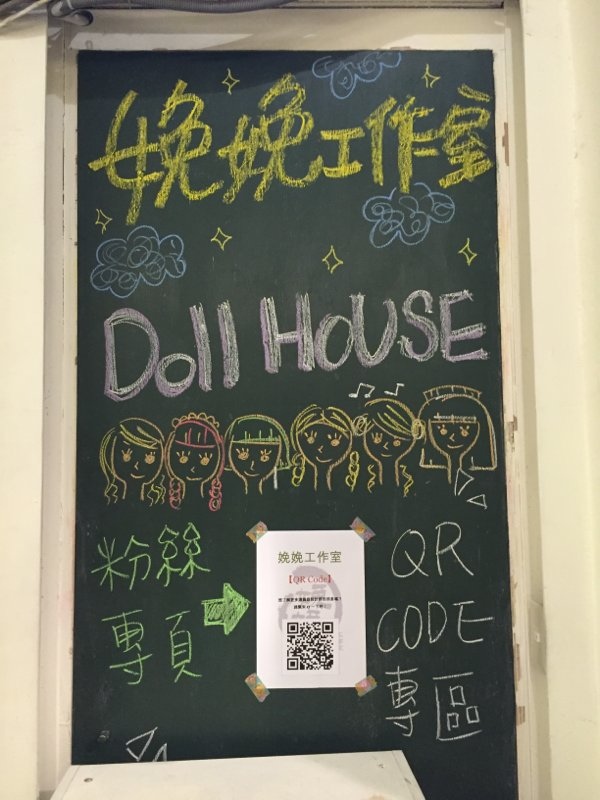 娩娩工作室
Doll HOUSE
粉絲
專頁
娩娩工作室
【QR Code】
QR
CODE
專區